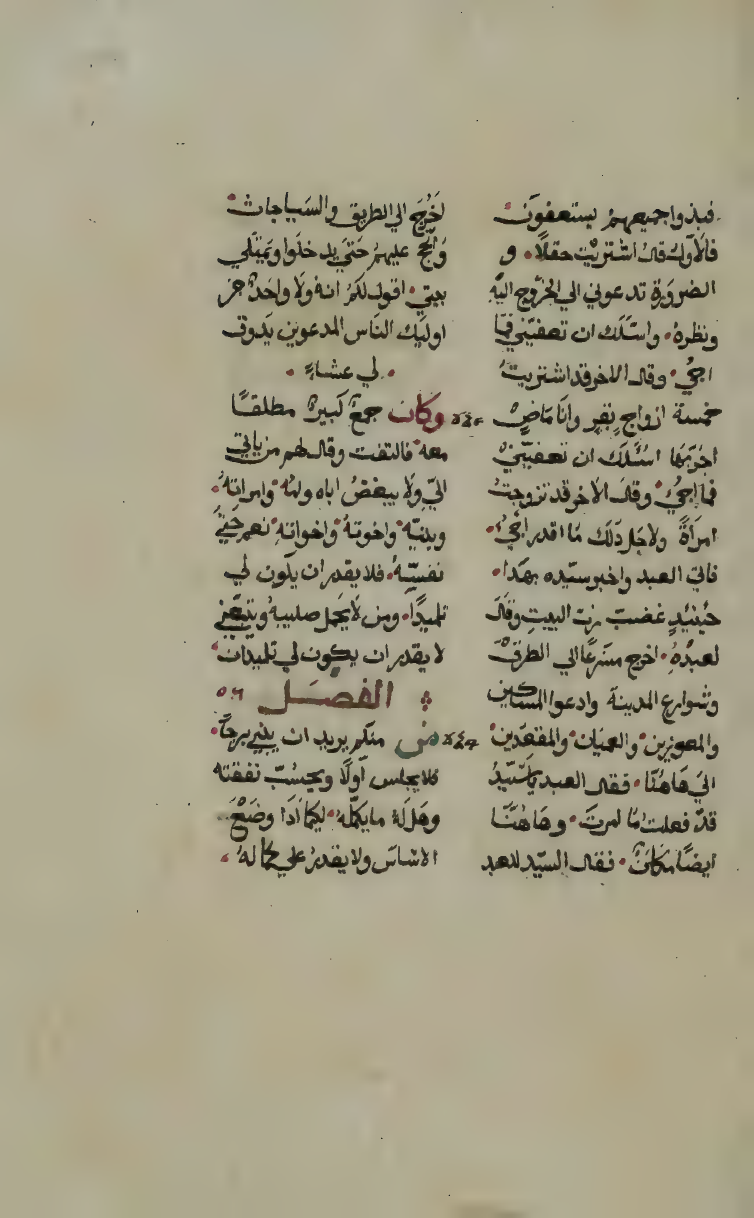 فبدوا جميعهم يستعفون
فالاول قال اشتريت حقلًا و
الضرورة تدعوني الي الخروج اليه
ونظره واسئلك ان تعفيني فما
اجي وقال الاخر قد اشتريت
خمسة ازواج بقر وانا ماضٍ
اجربها اسئلك ان تعفيني
فما اجي وقال الاخر قد تزوجت
امراةً ولاجل ذلك ما اقدر اجي
فاتي العبد واخبر سيده بهدا
حينيدٍ غضب رب البيت وقال
لعبده اخرج مسرعًا الي الطرق
وشوارع المدينة وادعوا المساكين
والمعوزين والعميان والمقعدين
الي هاهنا فقال العبد يا سيد
قد فعلت ما امرت وهاهنا
ايضًا مكان فقال السيد للعبد
اخرج الي الطريق والسياجات
والج عليهم حتي يدخلوا ويمتلي
بيتي اقول لكم انه ولا واحد من
اوليك الناس المدعوين يدوق
لي عشاء
وكان جمع كبير مطلقًا
معه فالتفت وقال لهم من ياتي
الي ولا يبغض اباه وامه وامراته
وبنيه واخوته واخواته نعم حتي
نفسه فلا يقدر ان يكون لي
تلميدًا ومن لا يحمل صليبه ويتبعني
لا يقدر ان يكون لي تلميدان
الفصل ٥٦
من منكم يريد ان يبني برجًا
فلا يجلس اولًا ويحسب نفقته
وهل له ما يكمله ليكما ادا وضع
الاساس ولا يقدر علي كماله